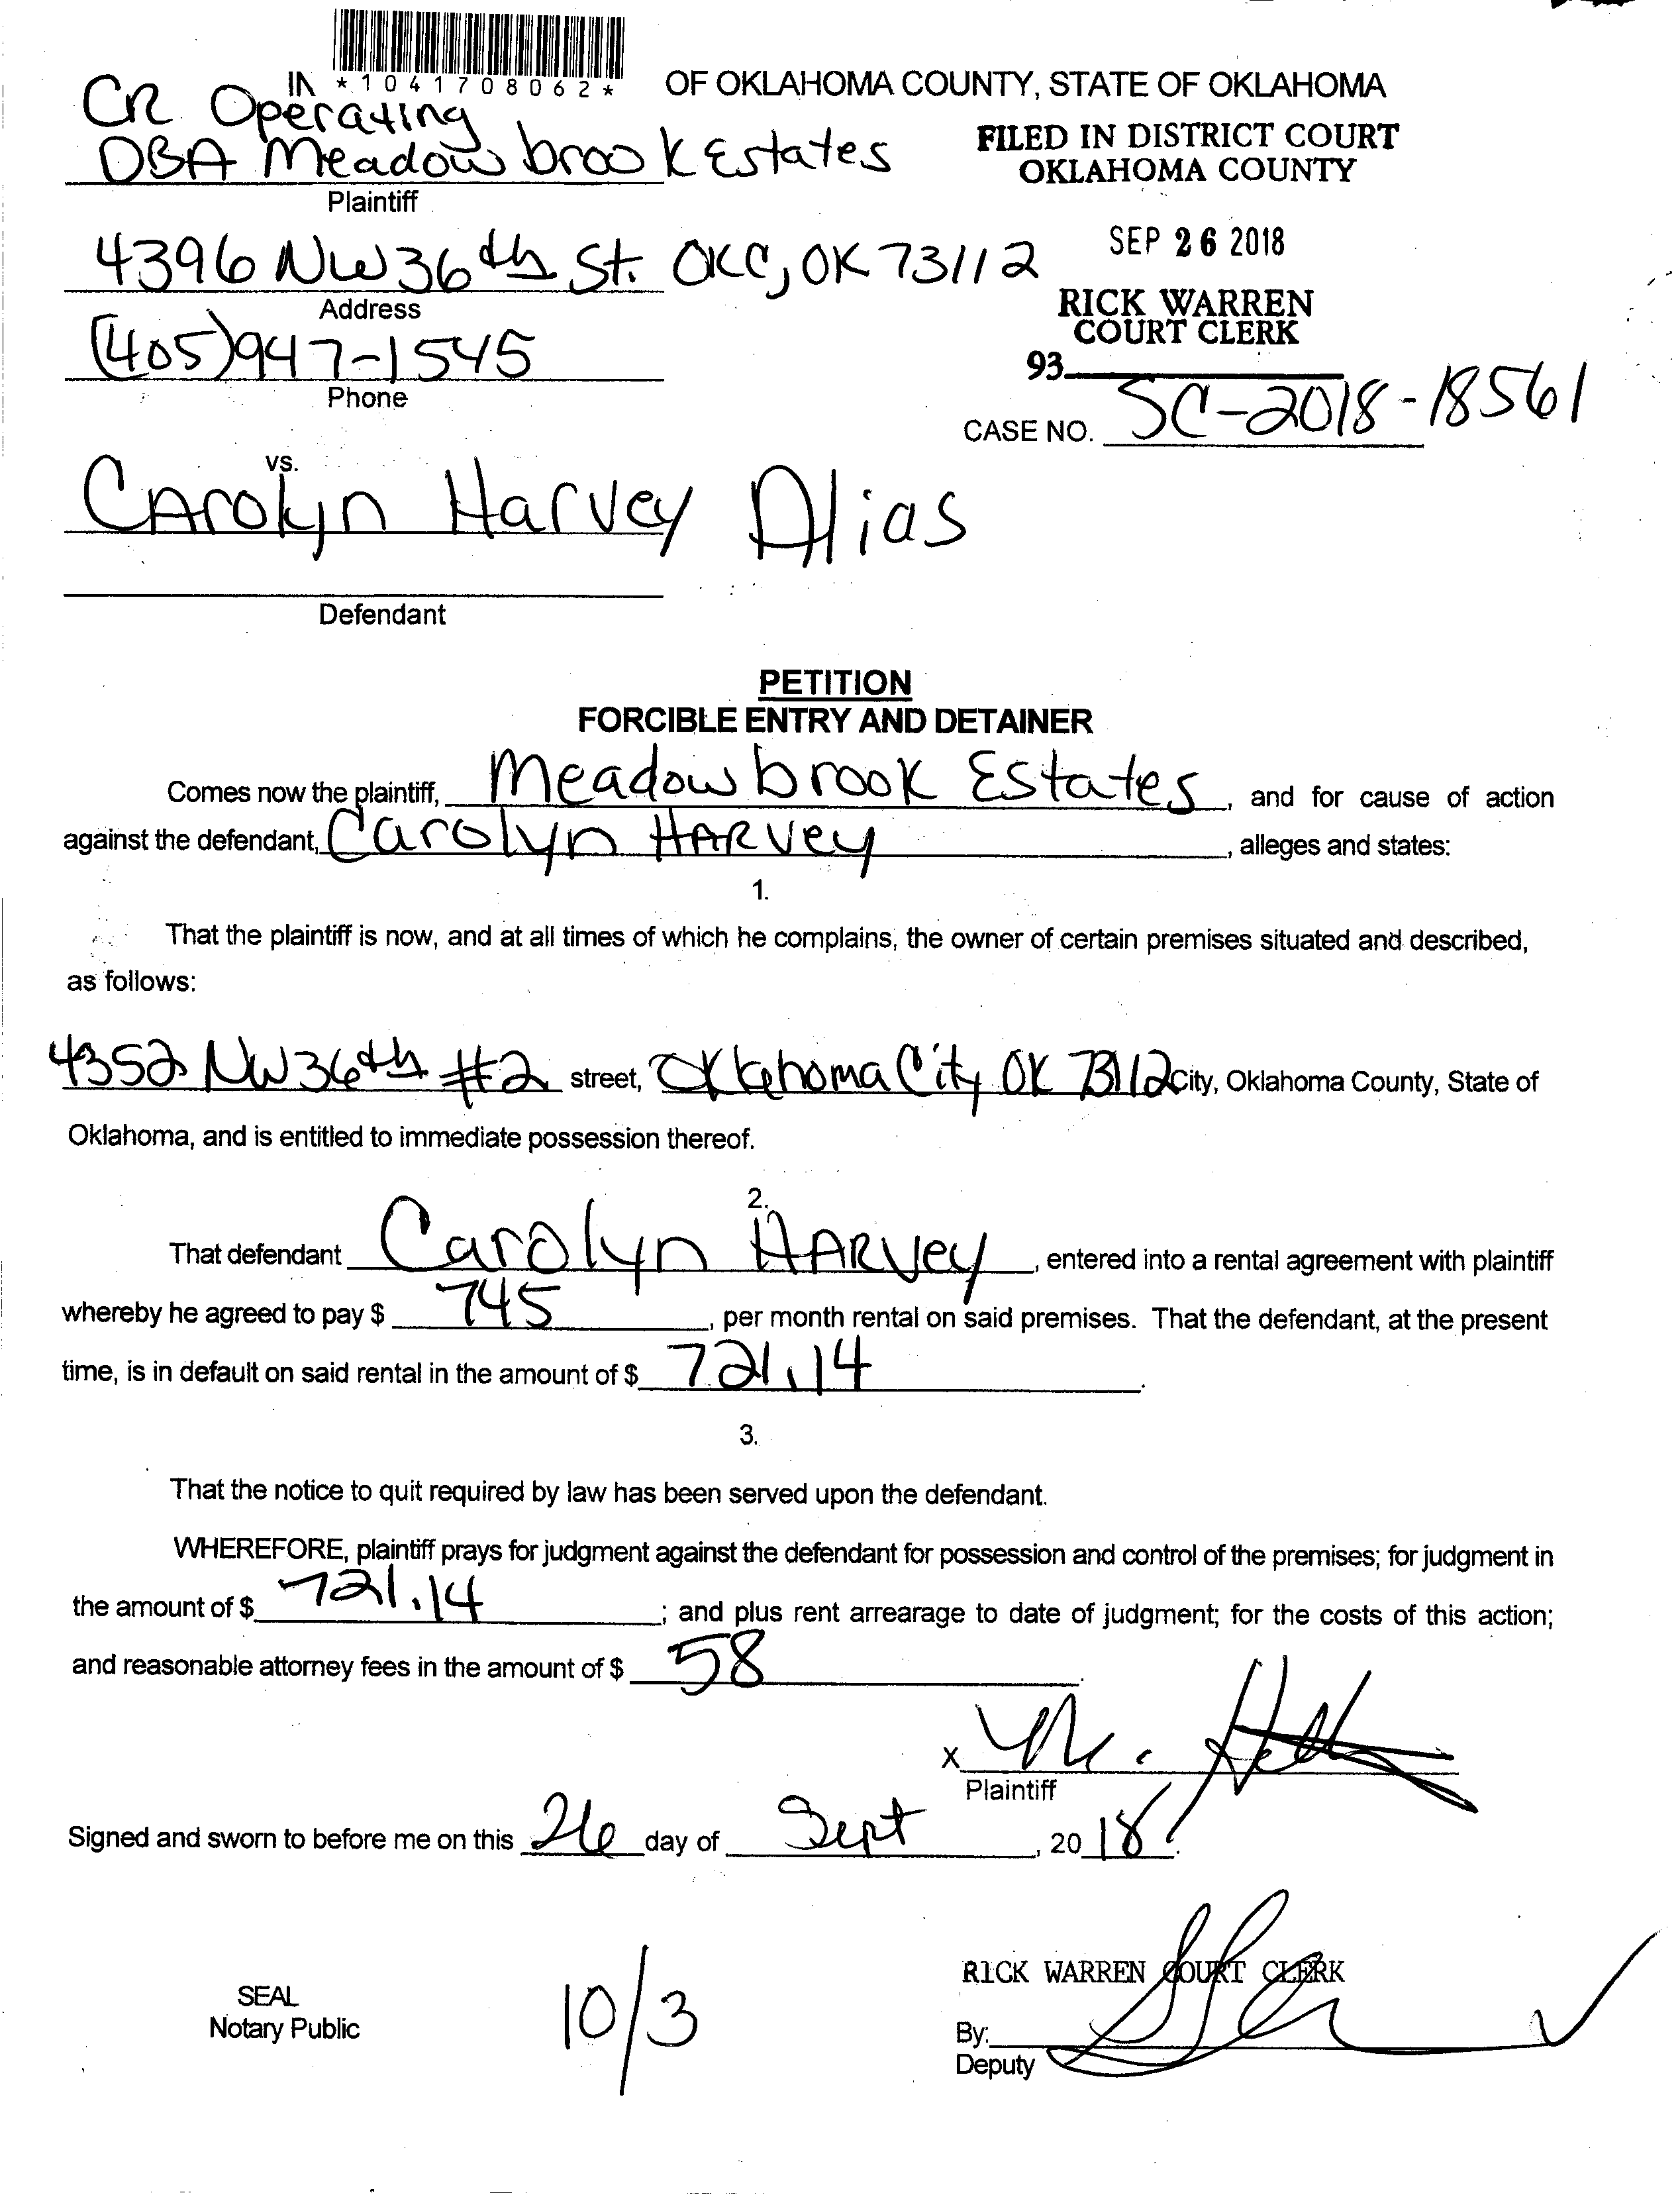 IN
*1041708062*
OF OKLAHOMA COUNTY, STATE OF OKLAHOMA
CR Operating
DBA Meadowbrook Estates
Plaintiff
FILED IN DISTRICT COURT
OKLAHOMA COUNTY
4396 NW 36th St. OKC, OK 73112
Address
SEP 26 2018
(405)947-1545
Phone
RICK WARREN
COURT CLERK
93
CASE NO. SC-2018-18561
vs.
Carolyn Harvey Alias
Defendant
PETITION
FORCIBLE ENTRY AND DETAINER
Comes now the plaintiff, Meadowbrook Estates, and for cause of action
against the defendant, Carolyn HARVey, alleges and states:
1.
That the plaintiff is now, and at all times of which he complains, the owner of certain premises situated and described,
as follows:
4352 NW 36th #2 street, Oklahoma City OK 73112 City, Oklahoma County, State of
Oklahoma, and is entitled to immediate possession thereof.
2.
That defendant Carolyn HARVey, entered into a rental agreement with plaintiff
whereby he agreed to pay $ 745, per month rental on said premises. That the defendant, at the present
time, is in default on said rental in the amount of $ 721.14.
3.
That the notice to quit required by law has been served upon the defendant.
WHEREFORE, plaintiff prays for judgment against the defendant for possession and control of the premises; for judgment in
the amount of $ 721.14; and plus rent arrearage to date of judgment; for the costs of this action;
and reasonable attorney fees in the amount of $ 58.
X
Plaintiff
Signed and sworn to before me on this 26 day of Sept, 2018.
RICK WARREN COURT CLERK
SEAL
Notary Public
10/3
By:
Deputy